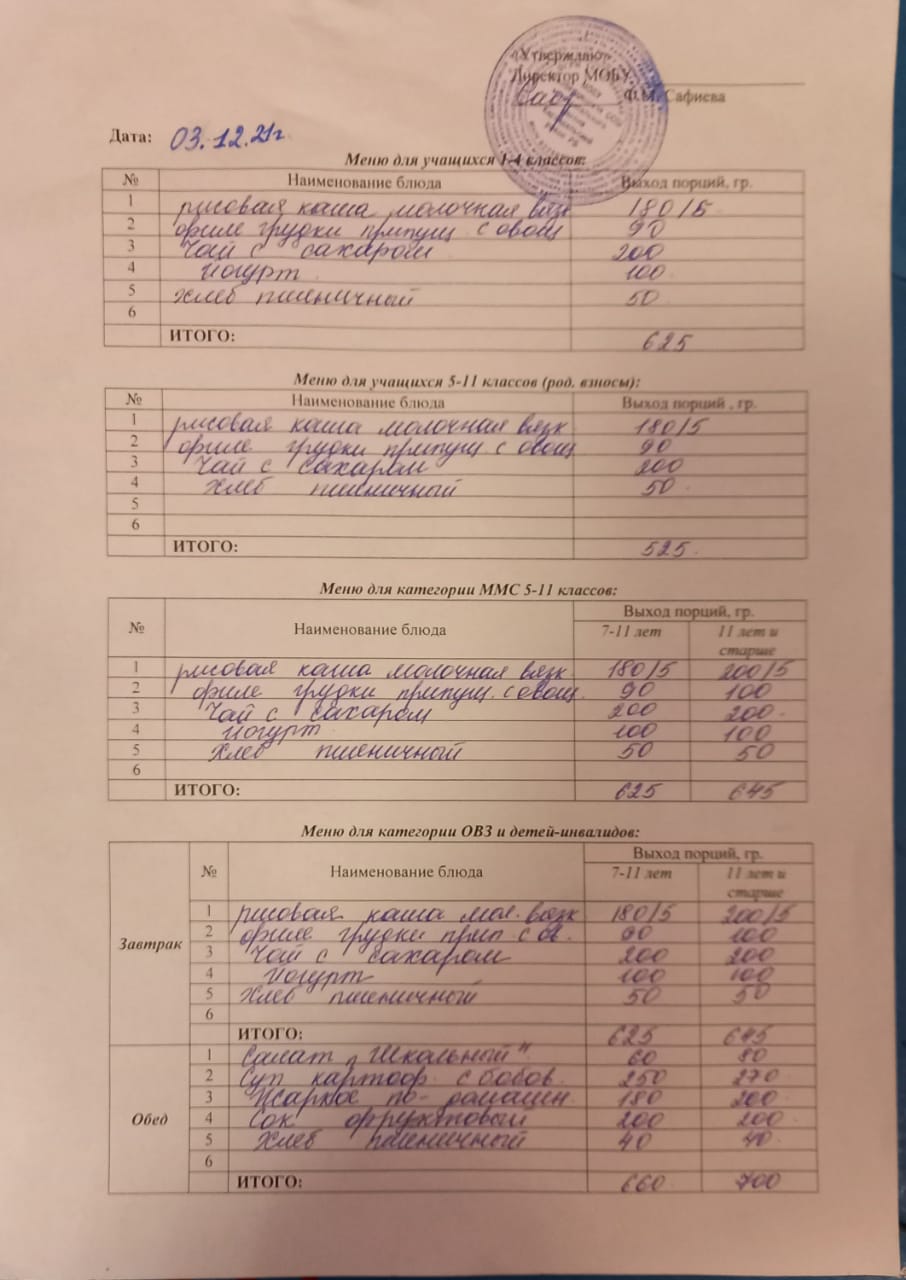 «Утверждаю»
Директор МОБУ
Ф.М. Сафиева
Дата: 03.12.21г
Меню для учащихся 1-4 классов:
№ Наименование блюда Выход порций, гр.
1 рисовая каша молочная вязк 180/5
2 филе грудки припущ с овощ 90
3 Чай с сахаром 200
4 Йогурт 100
5 Хлеб пшеничный 50
6
ИТОГО: 625
Меню для учащихся 5-11 классов (род. взносы):
№ Наименование блюда Выход порций , гр.
1 рисовая каша молочная вязк 180/5
2 филе грудки припущ с овощ 90
3 Чай с сахаром 200
4 Хлеб пшеничный 50
5
6
ИТОГО: 525
Меню для категории ММС 5-11 классов:
№ Наименование блюда Выход порций, гр.
7-11 лет 11 лет и старше
1 рисовая каша молочная вязк 180/5 200/5
2 филе грудки припущ. с овощ 90 100
3 Чай с сахаром 200 200
4 Йогурт 100 100
5 Хлеб пшеничный 50 50
6
ИТОГО: 625 645
Меню для категории ОВЗ и детей-инвалидов:
№ Наименование блюда Выход порций, гр.
7-11 лет 11 лет и старше
Завтрак
1 рисовая каша мол. вязк 180/5 200/5
2 филе грудки прип с ов. 90 100
3 Чай с сахаром 200 200
4 Йогурт 100 100
5 Хлеб пшеничный 50 50
6
ИТОГО: 625 645
Обед
1 Салат „Школьный" 60 80
2 Суп картоф. с бобов. 250 270
3 Жаркое по-домашн 180 200
4 Сок фруктовый 200 200
5 Хлеб пшеничный 40 40
6
ИТОГО: 660 700